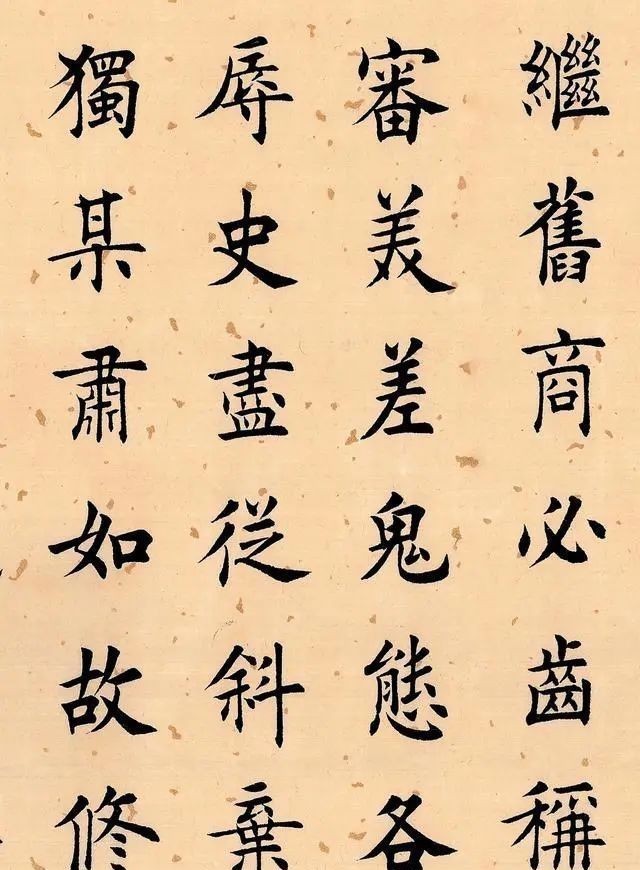 繼舊商必齒稱
審美差鬼態各
辱史盡從斜棄
獨某肅如故修